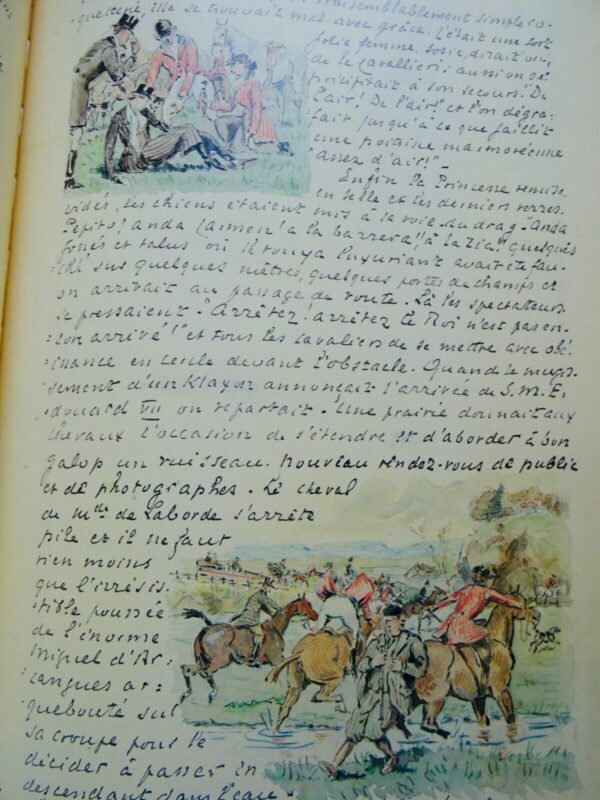 vraisemblablement simple co-
quetterie, elle se trouvait mal avec grâce. C'était une fort
jolie femme, sosie, disait on,
de le Cavallieri; aussi on se
précipitait à son secours. De
l'air! De l'air! et l'on dégra-
fait jusqu'à ce que faillit
une poitine marmoréenne
"assez d'air!" –
Enfin la Princesse remise
en selle et les derniers verres
vidés, les chiens étaient mis à la voie du drag. "Anda
Pepito! anda Carmen! a la barrera! a la tia!" quelques
fossés et talus où le touya luxuriant avait été fau-
ché sur quelques mètres, quelques portes de champs et
on arrivait au passage de route. Là les spectateurs
se pressaient. "Arrêtez! arrêtez le Roi n'est pas en-
core arrivé!" et tous les cavaliers de se mettre avec obé-
issance en cercle devant l'obstacle. Quand le mugis-
sement d'un Klaxon annonçait l'arrivée de S.M. E-
douard VII on repartait. Une prairie donnait aux
chevaux l'occasion de s'étendre et d'aborder à bon
galop un ruisseau. Nouveau rendez-vous de public
et de photographes. Le cheval
de Mde de Laborde s'arrête
pile et il ne faut
rien moins
que l'irrésis-
tible poussée
de l'énorme
Miguel d'Ar-
cangues ar-
quebouté sur
sa croupe pour le
décider à passer en
descendant dans l'eau.